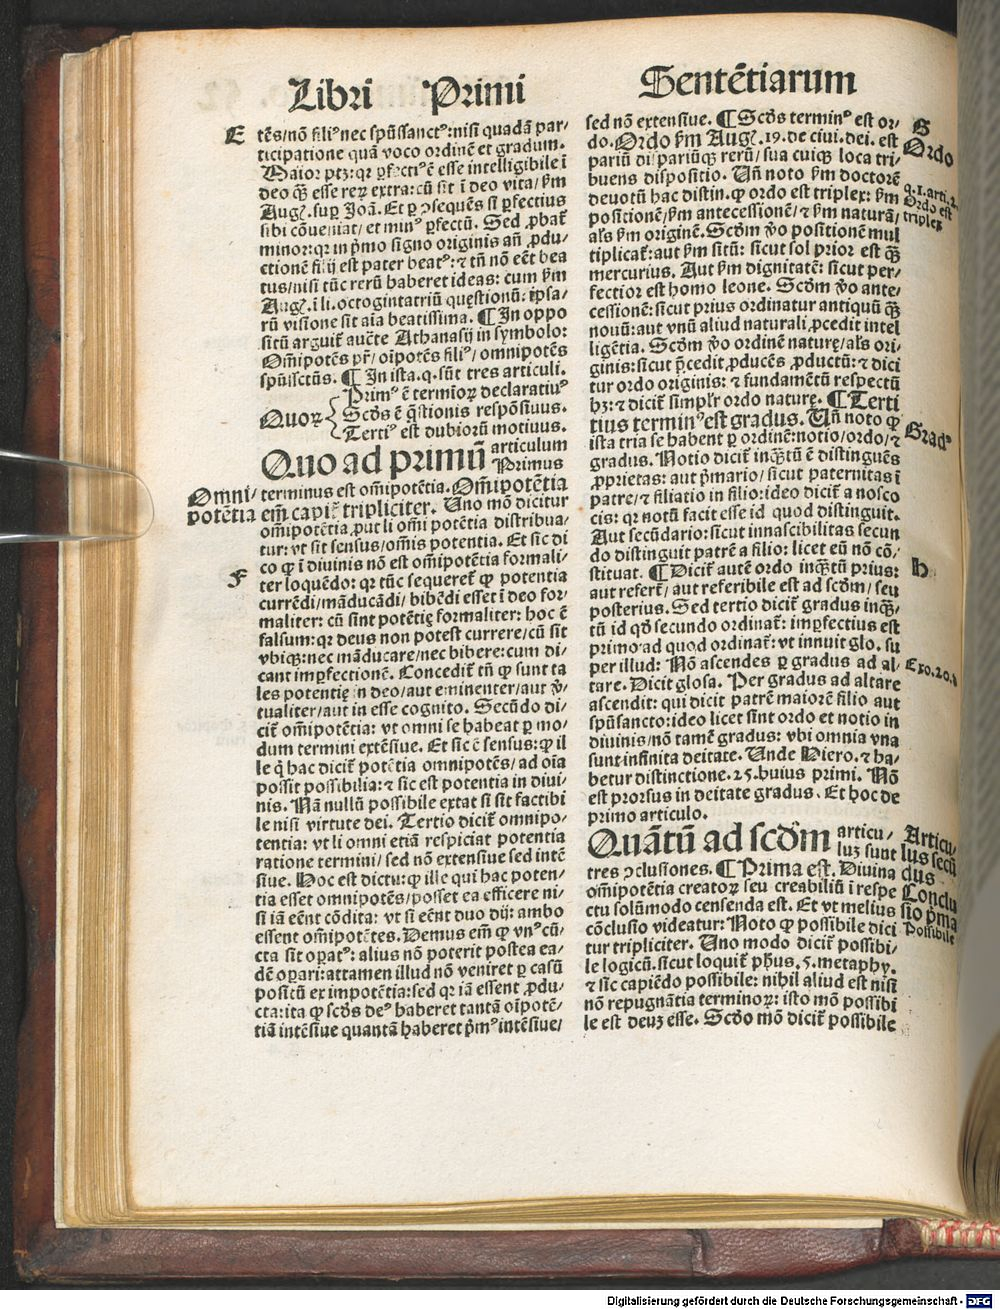 Libri Primi
E
tēs/nō filiꝰ nec spūssanctꝰ: nisi quadā par/
ticipatione quā voco ordinē et gradum.
Maior ptꝫ: qꝛ ꝑfectiꝰ ē esse intelligibile ī
deo qƺ̄ esse reꝝ extra: cū sit ī deo vita/ ẜm
Augꝰ. suꝑ Joā. Et ꝑ ꝯsequēs si ꝑfectius
sibi cōueniat/ et minꝰ ꝑfectū. Sed ꝓbat̄
minor: qꝛ in pͥmo signo originis añ ꝓdu/
ctionē filij est pater beatꝰ: ⁊ tñ nō eēt bea
tus/ nisi tūc rerū haberet ideas: cum ẜm
Augꝰ. ī li. octogintatriū quęstionū: ipsa/
rū visione sit aīa beatissima. ¶ In oppo
sitū arguit̄ aucte Athanasij in symbolo:
Om̄ipotēs pr̄/ oīpotēs filiꝰ/ omnipotēs
spūssctūs. ¶ In ista .q. sūt tres articuli.
Quoꝝ
Primꝰ ē termioꝝ declaratiuꝰ
Scd̄s ē q̄stionis respōsiuus.
Tertiꝰ est dubiorū motiuus.
Quo ad primū articulum
Primus
Omni/
potētia
terminus est om̄ipotētia. Om̄ipotētia
em̄ capit̄ tripliciter. Uno mō dicitur
om̄ipotētia ꝓut li om̄i potētia distribua/
tur: vt sit sensus/ om̄is potentia. Et sic di
F
co ꝙ ī diuinis nō est om̄ipotētia formali/
ter loquēdo: qꝛ tūc sequeret̄ ꝙ potentia
currēdi/ māducādi/ bibēdi esset ī deo for/
maliter: cū sint potētię formaliter: hoc ē
falsum: qꝛ deus non potest currere/ cū sit
vbiqꝫ: nec māducare/ nec bibere: cum di/
cant imꝑfectionē. Concedit̄ tñ ꝙ sunt ta
les potentię in deo/ aut eminenter/ aut v̓/
tualiter/ aut in esse cognito. Secūdo di/
cit̄ om̄ipotētia: vt omni se habeat ꝑ mo/
dum termini extēsiue. Et sic ē sensus: ꝙ il
le q̄ hac dicit̄ potētia omnipotēs/ ad oīa
possit possibilia: ⁊ sic est potentia in diui/
nis. Nā nullū possibile extat si sit factibi
le nisi virtute dei. Tertio dicit̄ omnipo/
tentia: vt li omni etiā respiciat potentia
ratione termini/ sed nō extensiue sed intē
siue. Hoc est dictu: ꝙ ille qui hac poten/
tia esset omnipotēs/ posset ea efficere ni/
si iā eēnt cōdita: vt si eēnt duo dij: ambo
essent om̄ipotētes. Demus em̄ ꝙ vnꝰ cū/
cta sit oꝑatꝰ: alius nō poterit postea ea/
dē oꝑari: attamen illud nō veniret ꝑ casū
positū ex impotētia: sed qꝛ iā essent ꝓdu/
cta: ita ꝙ scd̄s deꝰ haberet tantā oīpotē/
tiā intēsiue quantā haberet pͥmꝰ intēsiue/
Sentētiarum
sed nō extensiue. ¶ Scd̄s terminꝰ est or/
G
do. Ordo ẜm Augꝰ. 19. de ciui. dei. est
Ordo
pariū dispariūqꝫ rerū/ sua cuiqꝫ loca tri/
buens dispositio. Uñ noto ẜm doctorē
deuotū hac distin. ꝙ ordo est triplex: ẜm
q. 1. arti. 2.
Ordo est
triplex
positionē/ ẜm antecessionē/ ⁊ ẜm naturā/
al̄s ẜm originē. Scd̄m v̓o positionē mul
tiplicat̄: aut ẜm sitū: sicut sol prior est qƺ̄
mercurius. Aut ẜm dignitatē: sicut per/
fectior est homo leone. Scd̄m v̓o ante/
cessionē: sicut prius ordinatur antiquū qƺ̄
nouū: aut vnū aliud naturali ꝓcedit intel
ligētia. Scd̄m v̓o ordinē naturę/ al̄s ori/
ginis: sicut p̄cedit ꝓducēs ꝓductū: ⁊ dici
tur ordo originis: ⁊ fundamētū respectū
hꝫ: ⁊ dicit̄ simpl̄r ordo naturę. ¶ Terti
tius terminꝰ est gradus. Uñ noto ꝙ
Gradꝰ
ista tria se habent ꝑ ordinē: notio/ ordo/ ⁊
gradus. Notio dicit̄ inqƺ̄tū ē distinguēs
ꝓprietas: aut pͥmario/ sicut paternitas ī
patre/ ⁊ filiatio in filio: ideo dicit̄ a nosco
cis: qꝛ notū facit esse id quod distinguit.
Aut secūdario: sicut innascibilitas secun
do distinguit patrē a filio: licet eū nō cō/
stituat. ¶ Dicit̄ autē ordo inqƺ̄tū prius:
H
aut refert̄/ aut referibile est ad scd̄m/ seu
posterius. Sed tertio dicit̄ gradus inqƺ̄/
tū id qd̄ secundo ordinat̄: imꝑfectius est
primo ad quod ordinat̄: vt innuit glo. su
per illud: Nō ascendes ꝑ gradus ad al/
Exo. 20. d
tare. Dicit glosa. Per gradus ad altare
ascendit: qui dicit patrē maiorē filio aut
spūsancto: ideo licet sint ordo et notio in
diuinis/ nō tamē gradus: vbi omnia vna
sunt infinita deitate. Unde Hiero. ⁊ ha/
betur distinctione. 25. huius primi. Nō
est prorsus in deitate gradus. Et hoc de
primo articulo.
Quātū ad scd̄m articu/
luꝫ sunt
Articu/
lus secū
dus
tres ꝯclusiones. ¶ Prima est. Diuina
Conclu
sio pͥma
om̄ipotētia creatoꝝ seu creabiliū ī respe
ctu solūmodo censenda est. Et vt melius
Possibile
cōclusio videatur: Noto ꝙ possibile dici
tur tripliciter. Uno modo dicit̄ possibi/
le logicū. sicut loquit̄ ph̄us. 5. metaphy.
⁊ sic capiēdo possibile: nihil aliud est nisi
nō repugnātia terminoꝝ: isto mō possibi
le est deuꝫ esse. Scd̄o mō dicit̄ possibile
Digitalisierung gefördert durch die Deutsche Forschungsgemeinschaft - DFG